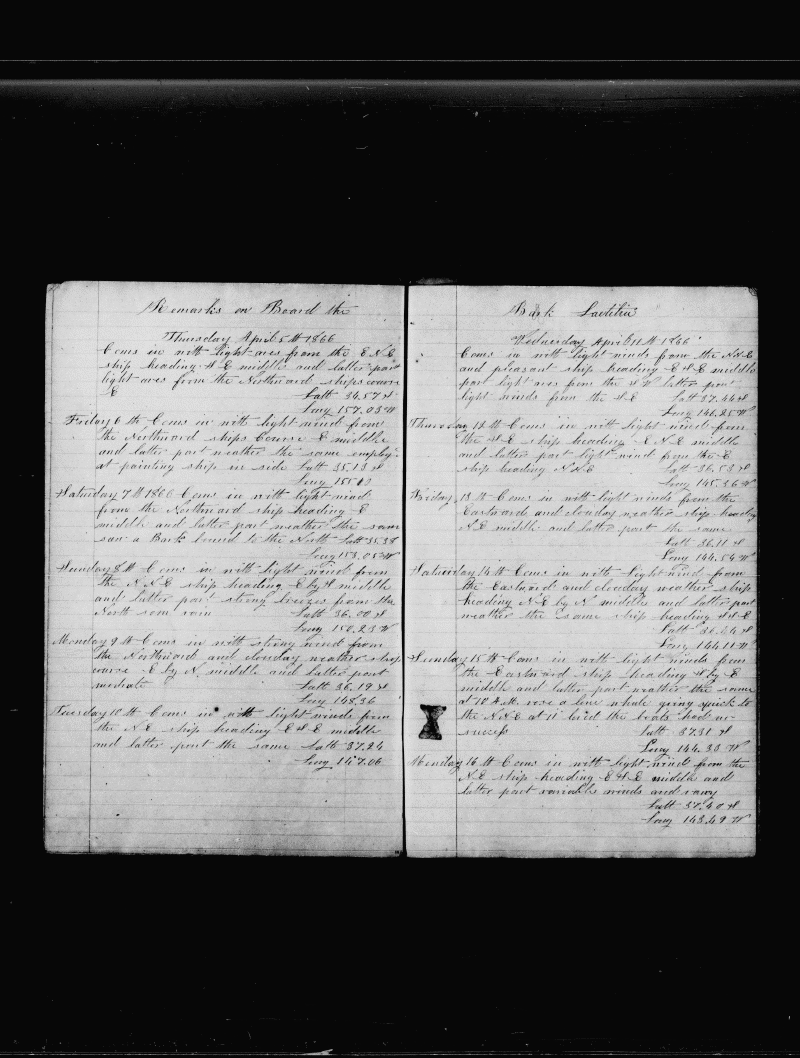 Remarks on Board the
Thursday April 5th 1866
Coms in with light ares from the E.N.E
ship heading S E middle and latter part
light ares from the Northward ships course
E Latt 34.57 S
Long 157.03 W
Friday 6th Coms in with light wind from
the Northward ships Course E middle
and latter part weather the same employ
at painting ship in side Latt 35.13 S
Long 155
Saturday 7th 1866 Coms in with light wind
from the Northward ship heading E
middle and latter part weather the same
saw a Bark bound to the North Latt 35.38
Long 153.05 W
Sunday 8th Coms in with light wind from
the N.N.E ship heading E by S middle
and latter part strong breezes from the
North som rain Latt 36.00 S
Long 150.23 W
Monday 9th Coms in with strong wind from
the Northward and clouday weather ship
course E by N middle and latter part
moderate Latt 36.19 S
Long 148.36
Tuesday 10th Coms in with light winds from
the N.E ship heading E S E middle
and latter part the same Latt 37.24
Long 147.06
Bark Laetitia
Wednesday April 11th 1866
Coms in with light winds from the N.N.E
and pleasant ship heading E S E middle
part light ares from the S W latter part
light winds from the S E Latt 37.44 S
Long 146.25 W
Thursday 12th Coms in with light wind from
the S E ship heading E N E middle
and latter part light wind from the E
ship heading N N E Latt 36.53 S
Long 145.36 W
Friday 13th Coms in with light winds from the
Eastward and clouday weather ship heading
N E middle and latter part the same
Latt 36.11 S
Long 144.54 W
Saturday 14th Coms in with light wind from
the Eastward and clouday weather ship
heading N.E by N middle and latter part
weather the same ship heading S S E
Latt 36.44 S
Long 144.11 W
Sunday 15th Coms in with light winds from
the Eastward ship heading S by E
middle and latter part weather the same
at 10 A.M. rose a lone whale going quick to
the N.N.E at 11 lored the boats had no
success Latt 37.31 S
Long 144.30 W
Monday 16th Coms in with light wind from the
N.E ship heading E S E middle and
latter part variable winds and rainy
Latt 37.40 S
Long 143.49 W